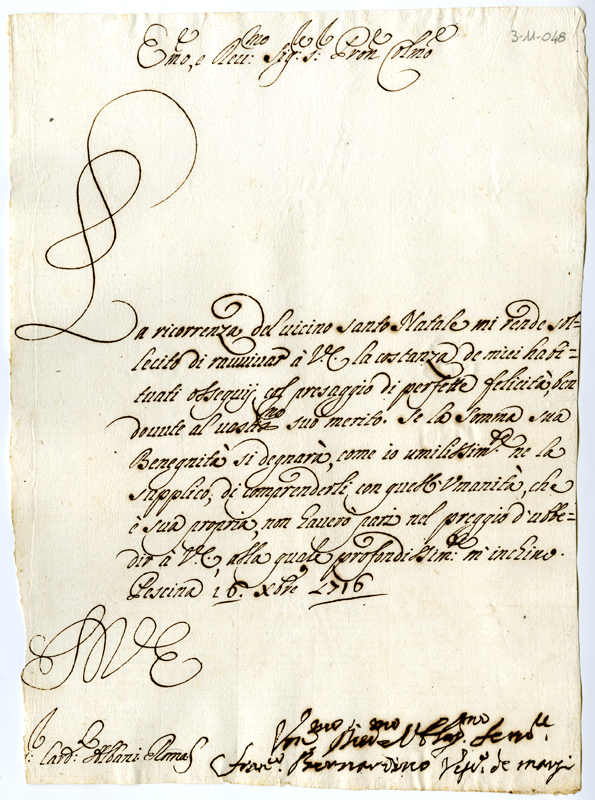 3-11-048
Em.o, e Reu.mo Sig.re Sig.r Pron Colmo
La ricorrenza del uicino santo Natale mi rende sol=
lecito di rauuiuar à V.E. la costanza de miei habi=
tuati ossequij, col presaggio di perfette felicità, ben
douute al uastis.mo suo merito. Se la somma sua
Benegnità si degnarà, come io umilissim.te ne la
supplico, di comprenderli con quell'Vmanità, che
è sua propria, non hauerò pari nel preggio d'ubbe=
dir à V.E. alla quale profondissim.te m'inchino.
Pescina 16. Xbre 1716
V E
Card. Albani Roma
Vmo Diuo et Obl.mo Serre
Franc. Bernardino Vesc. de Marsi